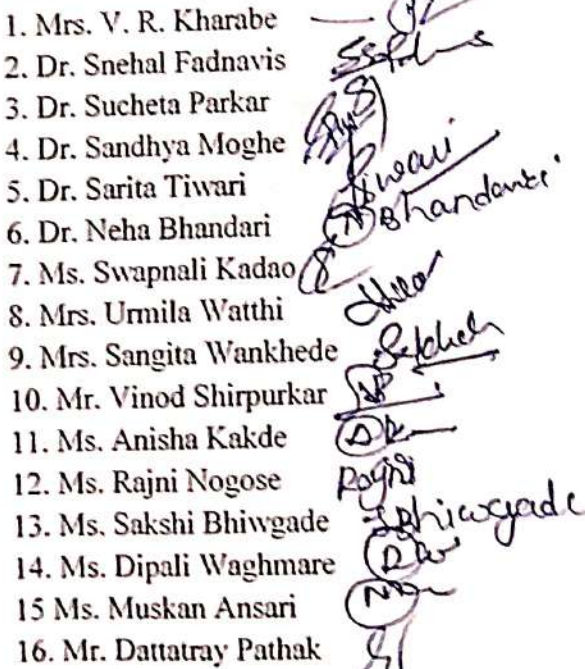 1. Mrs. V. R. Kharabe
2. Dr. Snehal Fadnavis
3. Dr. Sucheta Parkar
4. Dr. Sandhya Moghe
5. Dr. Sarita Tiwari Tiwari
6. Dr. Neha Bhandari Bhandari
7. Ms. Swapnali Kadao
8. Mrs. Urmila Watthi
9. Mrs. Sangita Wankhede
10. Mr. Vinod Shirpurkar
11. Ms. Anisha Kakde
12. Ms. Rajni Nogose Rajni
13. Ms. Sakshi Bhiwgade Bhiwgade
14. Ms. Dipali Waghmare
15 Ms. Muskan Ansari
16. Mr. Dattatray Pathak